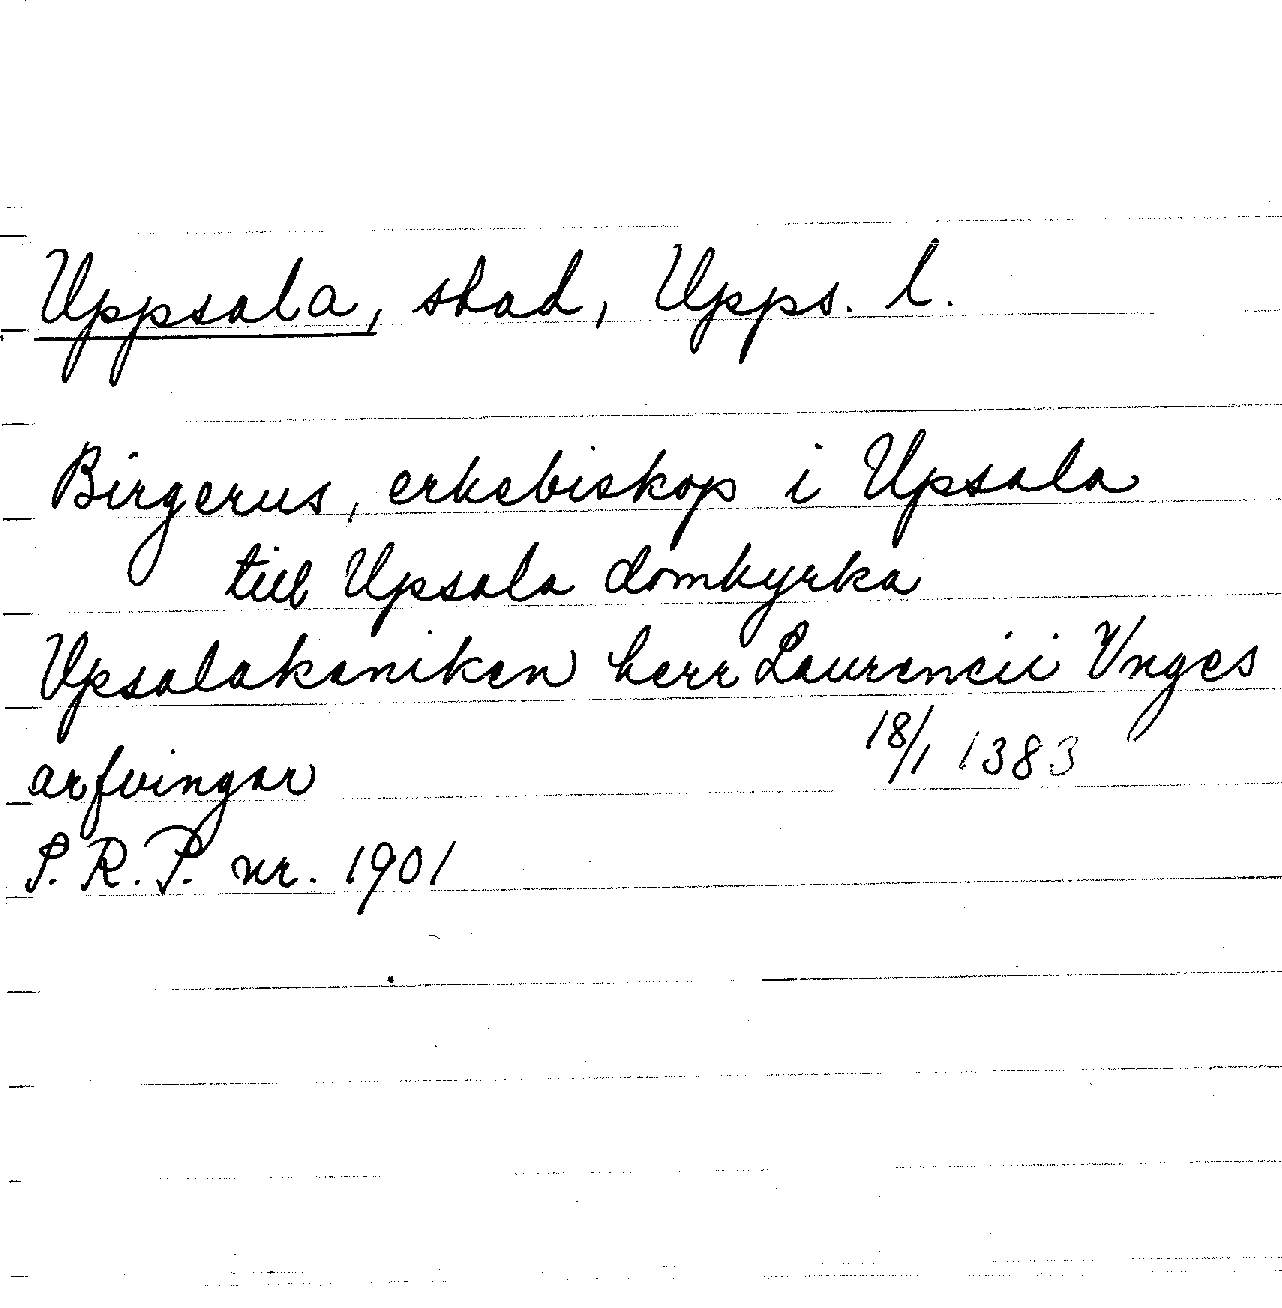 Uppsala, stad, Upps. l.
Birgerus, erkebiskop i Upsala
till Upsala domkyrka
Upsalakaniken herr Laurencii Vnges
arfvingar 18/1 1383
S.R.P. nr. 1901